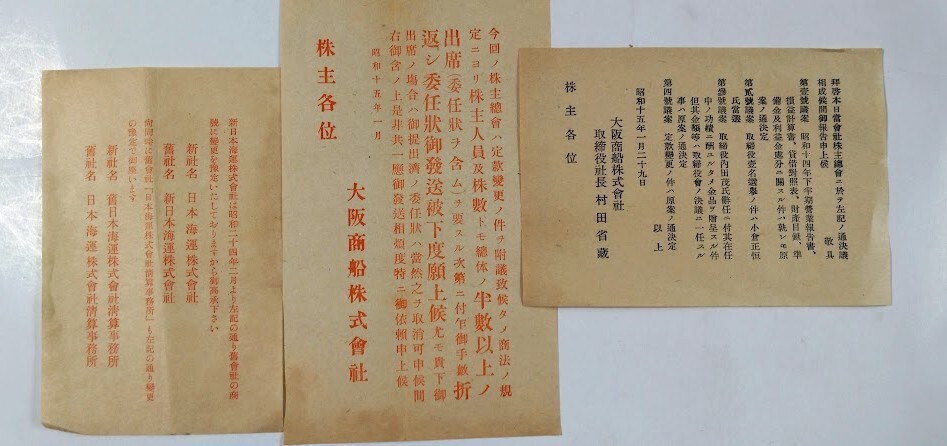 拜啓本日當會社株主總會ニ於テ左記ノ通決議
相成候間御報告申上候 敬具
第壹號議案 昭和十四年下半期營業報告書、
損益計算書、貸借對照表、財產目錄、準
備金及利益金處分ニ關スル件ハ孰レモ原
案ノ通決定
第貳號議案 取締役壹名選擧ノ件ハ小倉正恒
氏當選
第參號議案 取締役內田茂氏辭任ニ付其在任
中ノ功績ニ酬ユルタメ金品ヲ贈呈スル件
但其金額等ハ取締役會ノ決議ニ一任スル
事ハ原案ノ通決定
第四號議案 定款變更ノ件ハ原案ノ通決定
以上
昭和十五年一月二十九日
大阪商船株式會社
取締役社長 村田省藏
株主各位
今回ノ株主總會ハ定款變更ノ件ヲ附議致候タメ商法ノ規
定ニヨリ株主人員及株數トモ總体ノ半數以上ノ
出席(委任狀ヲ含ム)ヲ要スル次第ニ付乍御手數折
返シ委任狀御發送被下度願上候尤モ貴下御
出席ノ場合ハ御提出濟ノ委任狀ハ當然之ヲ取消可申候間
右御含ノ上是非共一應御發送相煩度特ニ御依賴申上候
昭和十五年一月
大阪商船株式會社
株主各位
新日本海運株式會社は昭和二十四年二月より左記の通り舊會社の商
號に變更を豫定いたしておりますから御高承下さい
新社名 日本海運株式會社
舊社名 新日本海運株式會社
尙同時に舊會社「日本海運株式會社淸算事務所」も左記の通り變更
の豫定で御座います
新社名 舊日本海運株式會社淸算事務所
舊社名 日本海運株式會社淸算事務所